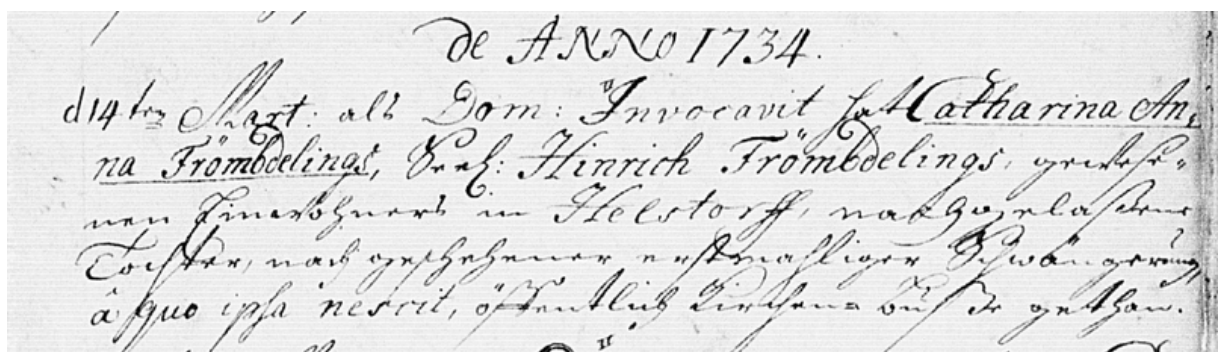 de ANNO 1734.
d 14ten Mart: als Dom: Invocavit hat Catharina An,
na Frömbdelings, Seel: Hinrich Frömbdelings, gewese-
nen Einwohners in Helstorff, nachgelaßene
Tochter, nach geschehener erstmahliger Schwängerung,
â quo ipsa nescit, öffentlich Kirchen-Buße gethan.